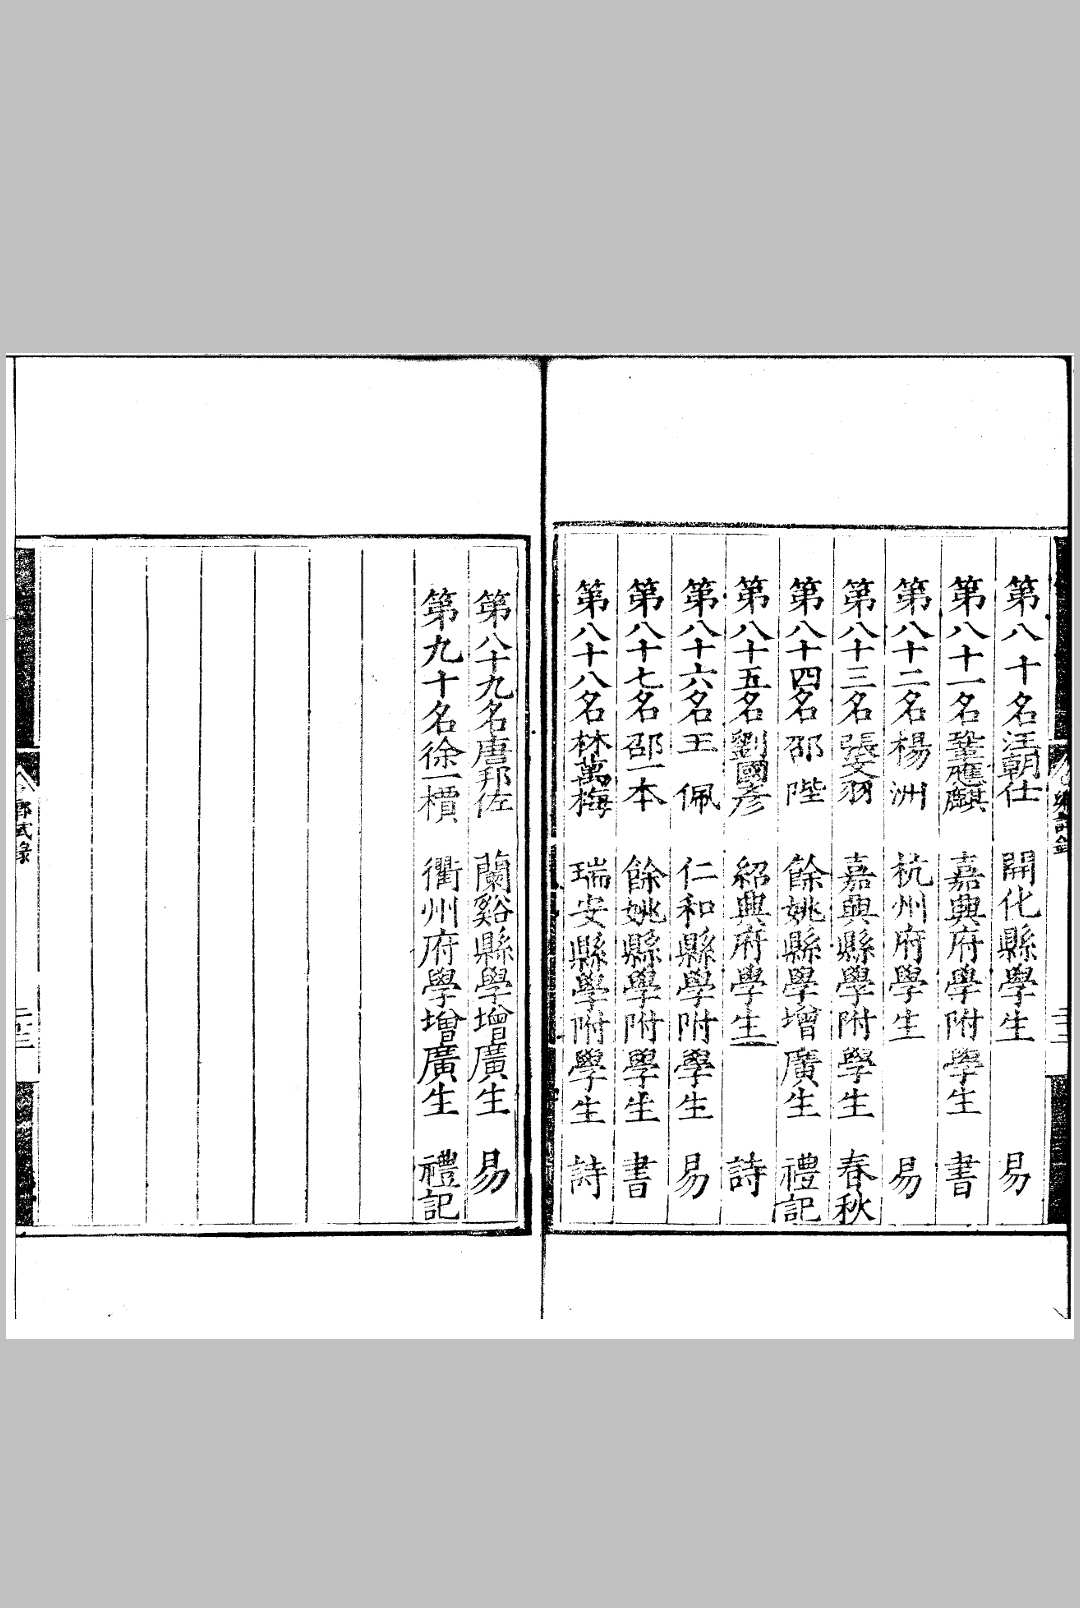 第八十名汪朝仕 開化縣學生 易
第八十一名鞏應麒 嘉興府學附學生 書
第八十二名楊洲 杭州府學生 易
第八十三名張文羽 嘉興縣學附學生 春秋
第八十四名邵陛 餘姚縣學增廣生 禮記
第八十五名劉國彥 紹興府學生 詩
第八十六名王佩 仁和縣學附學生 易
第八十七名邵一本 餘姚縣學附學生 書
第八十八名林萬梅 瑞安縣學附學生 詩
第八十九名唐邦佐 蘭谿縣學增廣生 易
第九十名徐一檟 衢州府學增廣生 禮記
鄉試錄